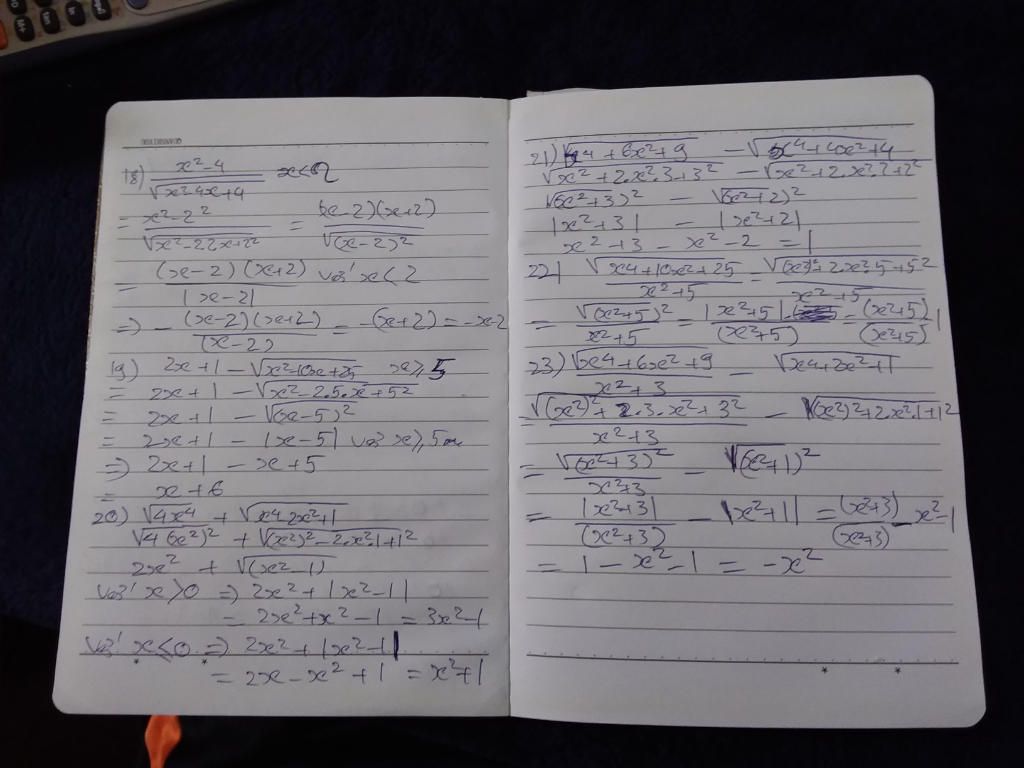 18) x²-4 / √x²-4x+4 x<2
= x²-2² / √x²-2·2x+2² = (x-2)(x+2) / √(x-2)²
= (x-2)(x+2) / |x-2| với x<2
=> - (x-2)(x+2) / (x-2) = -(x+2) = -x-2
19) 2x+1 - √x²-10x+25 x≥5
= 2x+1 - √x²-2.5.x+5²
= 2x+1 - √(x-5)²
= 2x+1 - |x-5| với x≥5
=> 2x+1 - x+5
= x+6
20) √4x⁴ + √x⁴-2x²+1
√4(x²)² + √(x²)²-2.x².1+1²
2x² + √(x²-1)
Với x>0 => 2x² + |x²-1|
= 2x²+x²-1 = 3x²-1
Với x≤0 => 2x² + |x²-1|
= 2x-x²+1 = x²+1
21) √x⁴+6x²+9 - √x⁴+4x²+4
√x²+2.x².3+3² - √x²+2.x².2+2²
√(x²+3)² - √(x²+2)²
|x²+3| - |x²+2|
x²+3 - x²-2 = 1
22) √x⁴+10x²+25 / x²+5 = √(x²)²+2x².5+5² / x²+5
= √(x²+5)² / x²+5 = |x²+5| / (x²+5) = (x²+5) / (x²+5) = 1
23) √x⁴+6x²+9 / x²+3 - √x⁴+2x²+1
= √(x²)²+2.3.x²+3² / x²+3 - √(x²)²+2.x².1+1²
= √(x²+3)² / x²+3 - √(x²+1)²
= |x²+3| / (x²+3) - |x²+1| = (x²+3) / (x²+3) - x²-1
= 1-x²-1 = -x²